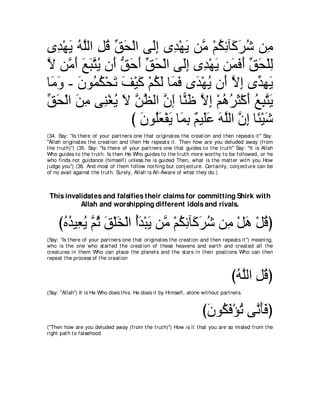 ﻣِﻦ ﺷُﺮَﻛَﺂﺋِﻜُﻢْ ﻣَّﻦ ﻳَﻬْﺪِﻯ ﺇِﻟَﻰ ﺍﻟْﺤَﻖِّ ﻗُﻞِ ﺍﻟﻠَّﻪُ ﻳَﻬْﺪِﻯ
ﻟِﻠْﺤَﻖِّ ﺃَﻓَﻤَﻦ ﻳَﻬْﺪِﻯ ﺇِﻟَﻰ ﺍﻟْﺤَﻖِّ ﺃَﺣَﻖُّ ﺃَﻥ ﻳُﺘَّﺒَﻊَ ﺃَﻣَّﻦ ﻻَّ
ﻳَﻬِﺪِّﻯ ﺇِﻻَّ ﺃَﻥ ﻳُﻬْﺪَﻯ ﻓَﻤَﺎ ﻟَﻜُﻢْ ﻛَﻴْﻒَ ﺗَﺤْﻜُﻤُﻮﻥَ - ﻭَﻣَﺎ
ﻳَﺘَّﺒِﻊُ ﺃَﻛْﺜَﺮُﻫُﻢْ ﺇِﻻَّ ﻇَﻨًّﺎ ﺇَﻥَّ ﺍﻟﻈَّﻦَّ ﻻَ ﻳُﻐْﻨِﻰ ﻣِﻦَ ﺍﻟْﺤَﻖِّ
ﺷَﻴْﺌًﺎ ﺇِﻥَّ ﺍﻟﻠَّﻪَ ﻋَﻠَﻴﻢٌ ﺑِﻤَﺎ ﻳَﻔْﻌَﻠُﻮﻥَ )
(34. Say: "Is there of your partners one that originates the creation and then repeats it'' Say: "Allah originates the creation and then He repeats it. Then how are you deluded away (from the truth)'') (35. Say: "Is there of your partners one that guides to the truth'' Say: "It is Allah Who guides to the truth. Is then He Who guides to the truth more worthy to be followed, or he who finds not guidance (himself) unless he is guided Then, what is the matter with you How judge you'') (36. And most of them follow nothing but conjecture. Certainly, conjecture can be of no avail against the truth. Surely, Allah is All-Aware of what they do.)
This invalidates and falsifies their claims for committing Shirk with
Allah and worshipping different idols and rivals.
(ﻗُﻞْ ﻫَﻞْ ﻣِﻦ ﺷُﺮَﻛَﺂﺋِﻜُﻢْ ﻣَّﻦ ﻳَﺒْﺪَﺃُ ﺍﻟْﺨَﻠْﻖَ ﺛُﻢَّ ﻳُﻌِﻴﺪُﻩُ)
(Say: "Is there of your partners one that originates the creation and then repeats it'') meaning, who is the one who started the creation of these heavens and earth and created all the creatures in them Who can place the planets and the stars in their positions Who can then repeat the process of the creation
(ﻗُﻞِ ﺍﻟﻠَّﻪُ)
(Say: "Allah'') It is He Who does this. He does it by Himself, alone without partners.
(ﻓَﺄَﻧَّﻰ ﺗُﺆْﻓَﻜُﻮﻥَ)
("Then how are you deluded away (from the truth)'') How is it that you are so misled from the right path to falsehood